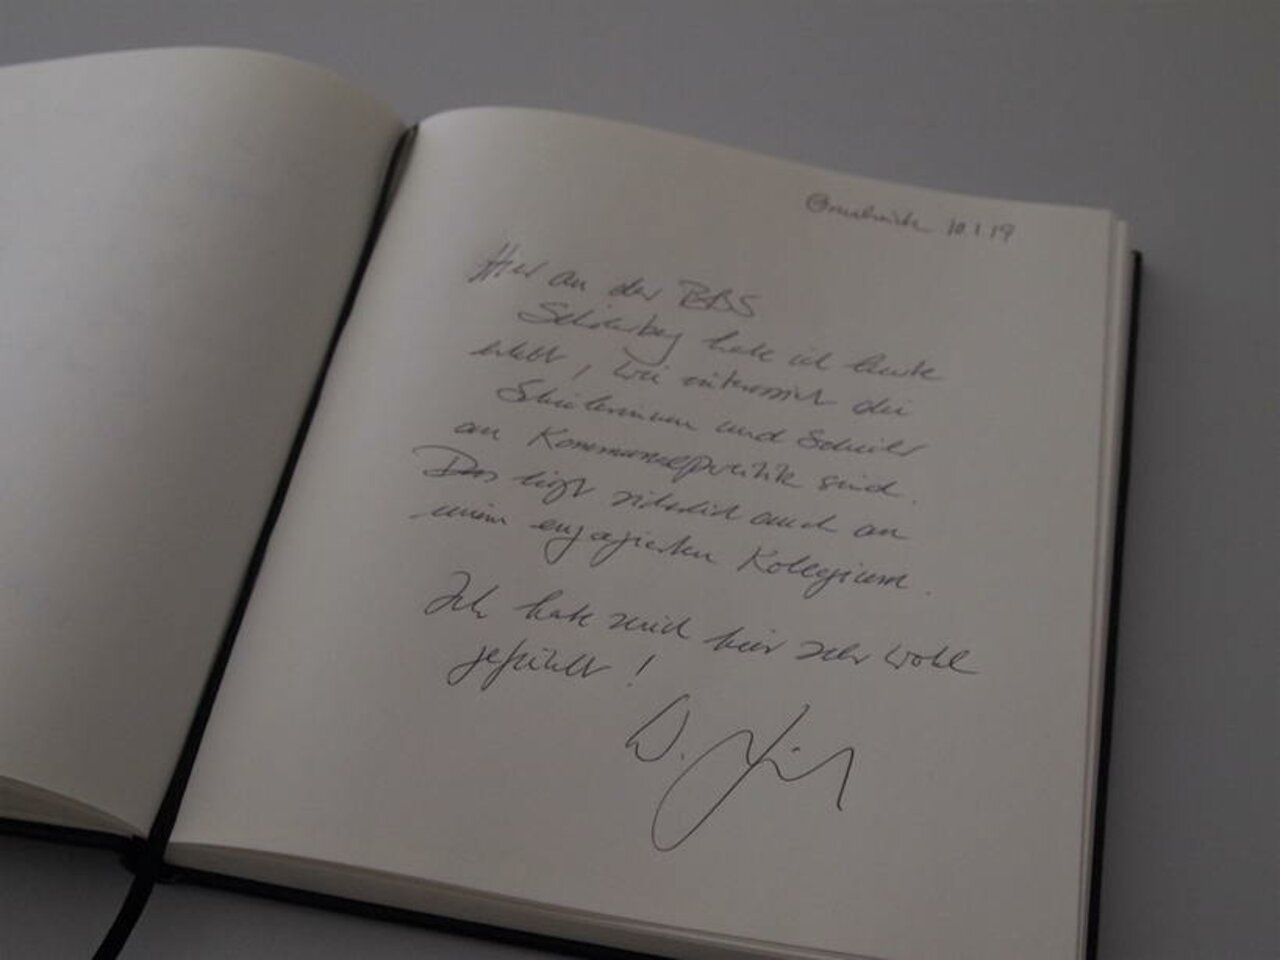 Osnabrück 10.1.19
Hier an der BBS
Schölerberg habe ich heute
erlebt, wie interessiert die
Schülerinnen und Schüler
an Kommunalpolitik sind.
Das liegt sicherlich auch an
einem engagierten Kollegium.
Ich habe mich hier sehr wohl
gefühlt!
W.